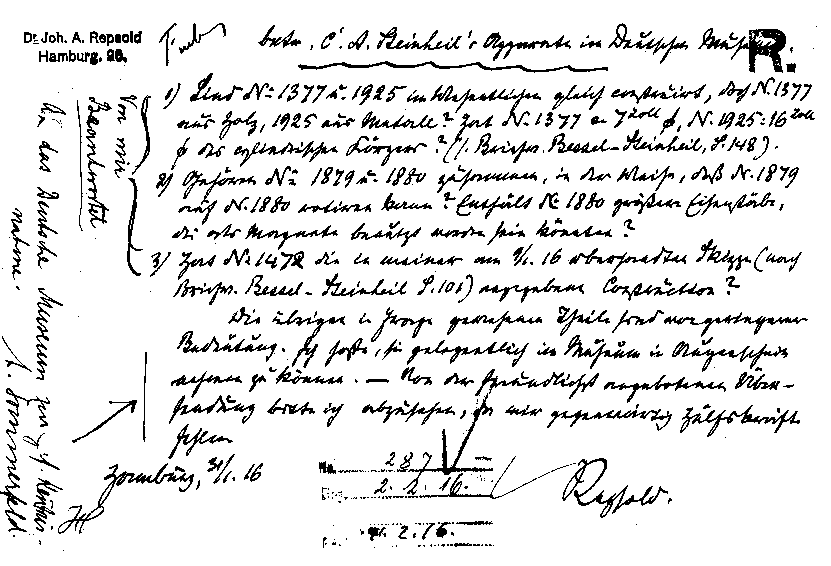 Dr. Joh. A. Repsold
Hamburg, 26.
betr. C. A. Steinheil's Apparate im Deutschen Museum.
R.
1) Sind No. 1377 u. 1925 im Wesentlichen gleich construirt, doch N. 1377
aus Holz, 1925 aus Metall? Hat No. 1377 7 Zoll ϕ, N. 1925: 16 Zoll
ϕ des cylindrischen Körpers? (s. Briefw. Bessel-Steinheil, S. 148).
2) Gehören No. 1879 u. 1880 zusammen, in der Weise, daß N. 1879
auf N. 1880 rotiren kann? Enthält No 1880 größere Eisenstäbe,
die als Magnete benützt worden sein könnten?
3) Hat No. 1472 die in meiner am 9/1. 16 übersandten Skizze (nach
Briefw. Bessel-Steinheil S. 101) angegebene Construction?
Die übrigen in Frage gewesenen Theile sind von geringerer
Bedeutung. Ich hoffe, sie gelegentlich im Museum in Augenschein
nehmen zu können. — Von der freundlichst angebotenen Über-
sendung bitte ich abzusehen, da mir gegenwärtig Hülfskräfte
fehlen
Hamburg, 31/1. 16
Repsold.
No. 287
2. 2. 16.
2. 16.
Von mir
Beantwortet
An das Deutsche Museum zur gef. Kenntnis-
nahme.
A. Sommerfeld.